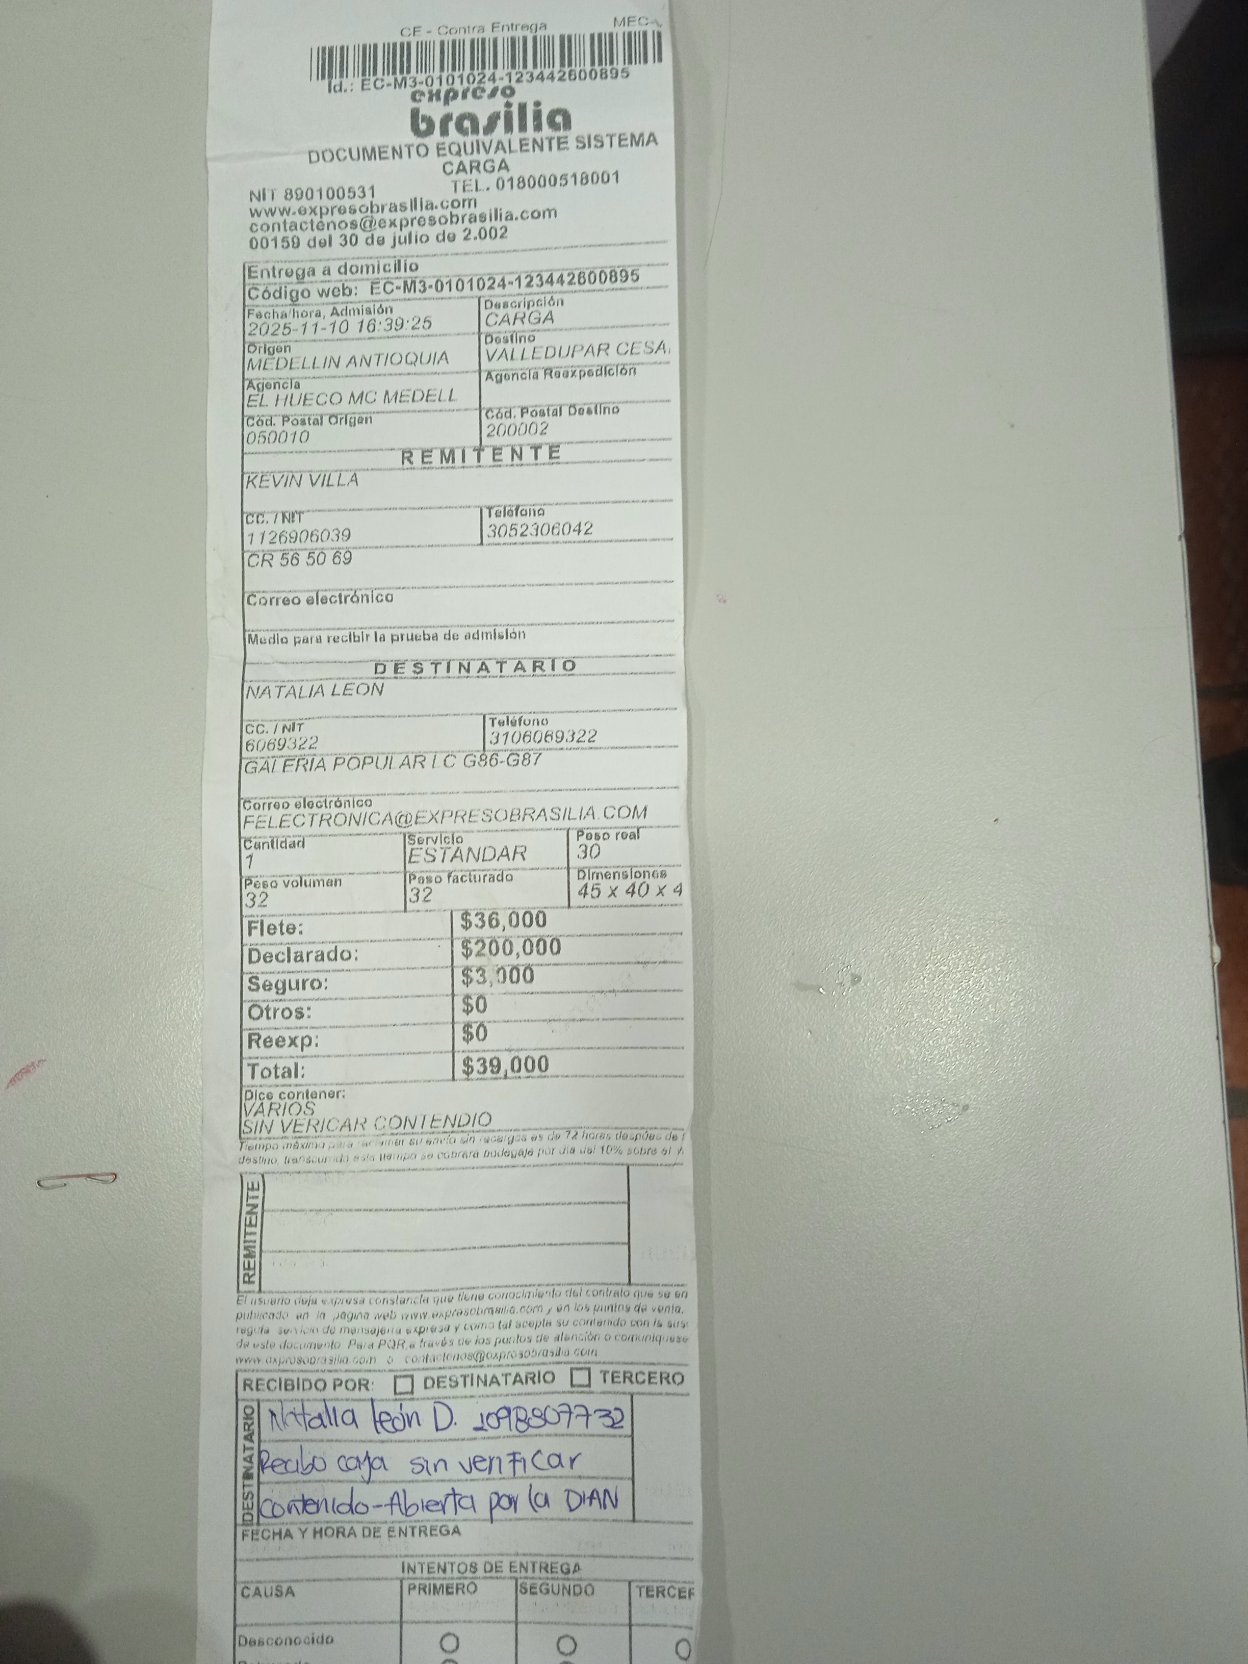 CE - Contra Entrega MEC
Id.: EC-M3-0101024-123442600895
expreso
brasilia
DOCUMENTO EQUIVALENTE SISTEMA
CARGA
NIT 890100531 TEL. 018000518001
www.expresobrasilia.com
contactenos@expresobrasilia.com
00159 del 30 de julio de 2.002
Entrega a domicilio
Código web: EC-M3-0101024-123442600895
Fecha/hora, Admisión Descripción
2025-11-10 16:39:25 CARGA
Origen Destino
MEDELLIN ANTIOQUIA VALLEDUPAR CESA
Agencia Agencia Reexpedición
EL HUECO MC MEDELL
Cód. Postal Origen Cód. Postal Destino
050010 200002
REMITENTE
KEVIN VILLA
CC. / NIT Teléfono
1126906039 3052306042
CR 56 50 69
Correo electrónico
Medio para recibir la prueba de admisión
DESTINATARIO
NATALIA LEON
CC. / NIT Teléfono
6069322 3106069322
GALERIA POPULAR LC G86-G87
Correo electrónico
FELECTRONICA@EXPRESOBRASILIA.COM
Cantidad Servicio Peso real
1 ESTANDAR 30
Peso volumen Peso facturado Dimensiones
32 32 45 x 40 x 4
Flete: $36,000
Declarado: $200,000
Seguro: $3,000
Otros: $0
Reexp: $0
Total: $39,000
Dice contener:
VARIOS
SIN VERICAR CONTENDIO
Tiempo máximo para reclamar su envío sin recargos es de 72 horas despúes de
destino, transcurrido este tiempo se cobrará bodegaje por día del 10% sobre el
REMITENTE
El usuario deja expresa constancia que tiene conocimiento del contrato que se en
publicado en la página web www.expresobrasilia.com y en los puntos de venta,
regula servicio de mensajería expresa y como tal acepta su contenido con la sus
de este documento. Para PQR a través de los puntos de atención o comuníquese
www.expresobrasilia.com o contactenos@expresobrasilia.com
RECIBIDO POR: DESTINATARIO TERCERO
DESTINATARIO
Natalia león D. 1098807732
Recibo caja sin verificar
contenido-Abierta por la DIAN
FECHA Y HORA DE ENTREGA
INTENTOS DE ENTREGA
CAUSA PRIMERO SEGUNDO TERCER
Desconocido